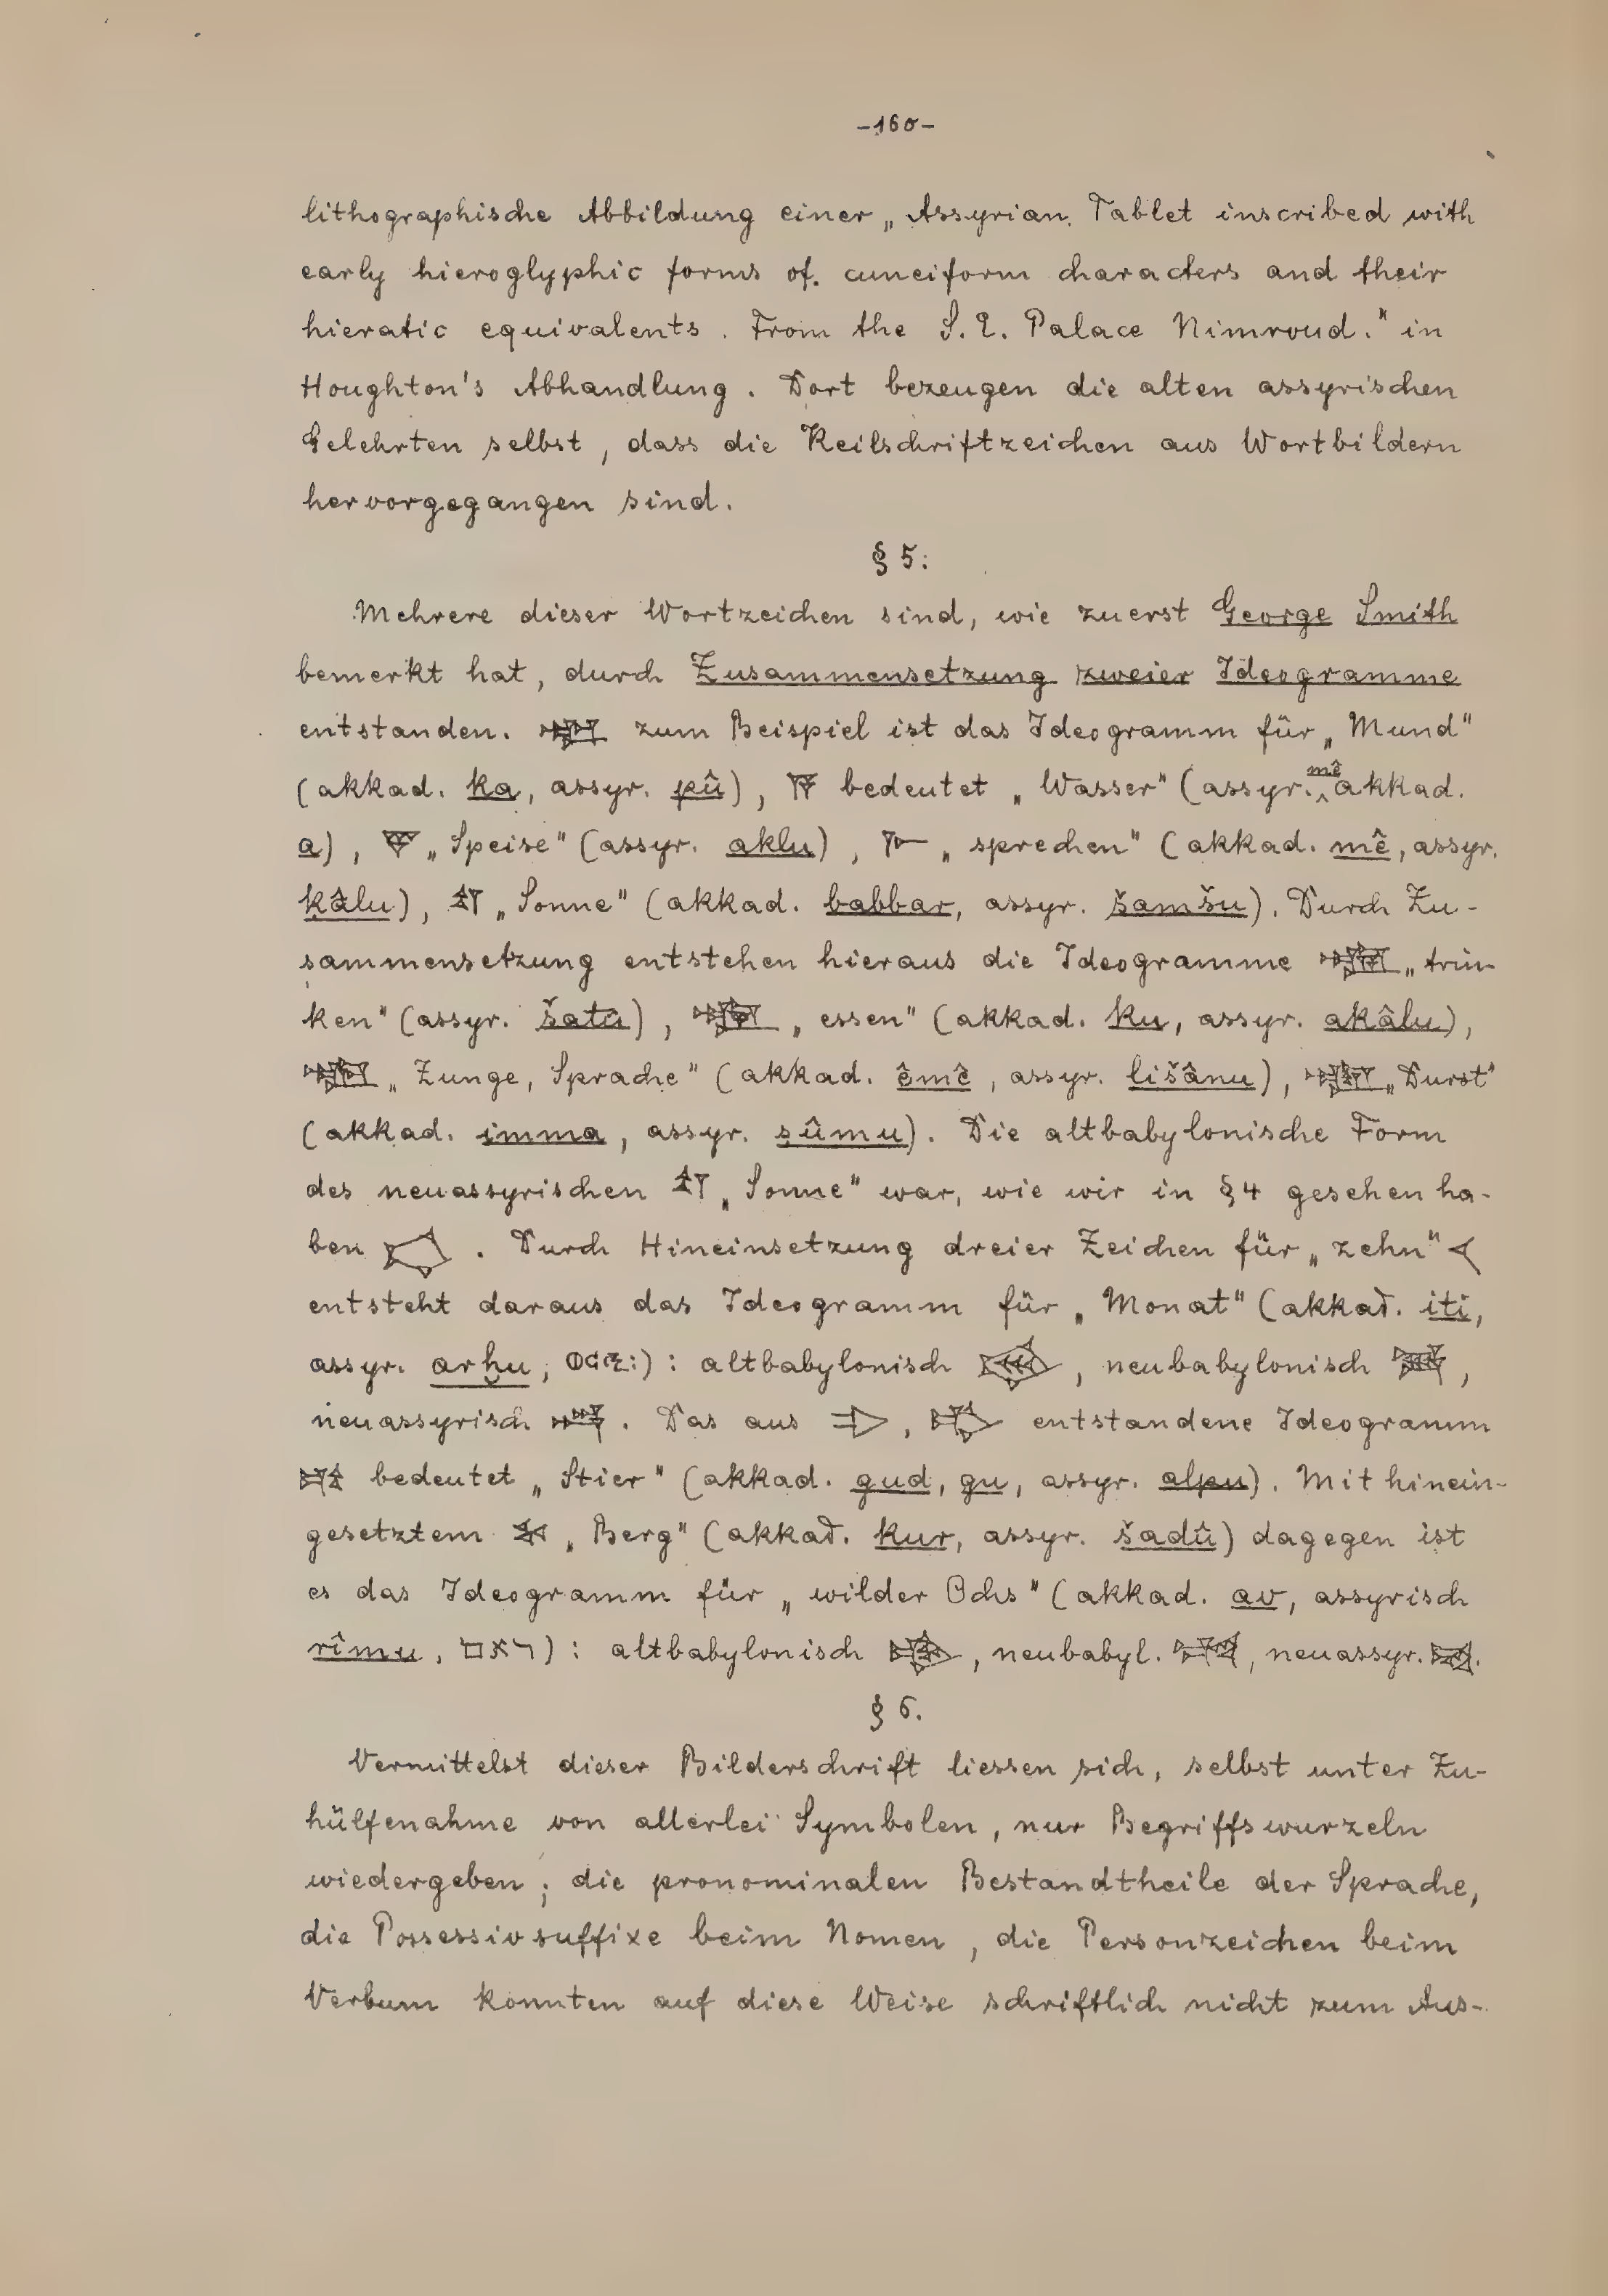 -160-
lithographische Abbildung einer „Assyrian Tablet inscribed with
early hieroglyphic forms of cuneiform characters and their
hieratic equivalents. From the S. E. Palace Nimroud." in
Houghton's Abhandlung. Dort bezeugen die alten assyrischen
Gelehrten selbst, dass die Keilschriftzeichen aus Wortbildern
hervorgegangen sind.
§ 5.
Mehrere dieser Wortzeichen sind, wie zuerst George Smith
bemerkt hat, durch Zusammensetzung zweier Ideogramme
entstanden. zum Beispiel ist das Ideogramm für „Mund"
(akkad. ka, assyr. pû), 𒀀 bedeutet „Wasser" (assyr. mê akkad.
a), „Speise" (assyr. aklu), „sprechen" (akkad. mê, assyr.
ḳâlu), „Sonne" (akkad. babbar, assyr. šamšu). Durch Zu-
sammensetzung entstehen hieraus die Ideogramme „trin-
ken" (assyr. šatû), „essen" (akkad. ku, assyr. akâlu),
„Zunge, Sprache" (akkad. êmê, assyr. lišânu), „Durst"
(akkad. imma, assyr. ṣûmu). Die altbabylonische Form
des neuassyrischen „Sonne" war, wie wir in § 4 gesehen ha-
ben . Durch Hineinsetzung dreier Zeichen für „zehn" 𒌋
entsteht daraus das Ideogramm für „Monat" (akkad. iti,
assyr. arḫu, ) : altbabylonisch , neubabylonisch ,
neuassyrisch . Das aus , entstandene Ideogramm
bedeutet „Stier" (akkad. gud, gu, assyr. alpu). Mit hinein-
gesetztem „Berg" (akkad. kur, assyr. šadû) dagegen ist
es das Ideogramm für „wilder Ochs" (akkad. av, assyrisch
rîmu, ) : altbabylonisch , neubabyl. , neuassyr. .
§ 6.
Vermittelst dieser Bilderschrift liessen sich, selbst unter Zu-
hülfenahme von allerlei Symbolen, nur Begriffswurzeln
wiedergeben; die pronominalen Bestandtheile der Sprache,
die Possessivsuffixe beim Nomen, die Personzeichen beim
Verbum konnten auf diese Weise schriftlich nicht zum Aus-